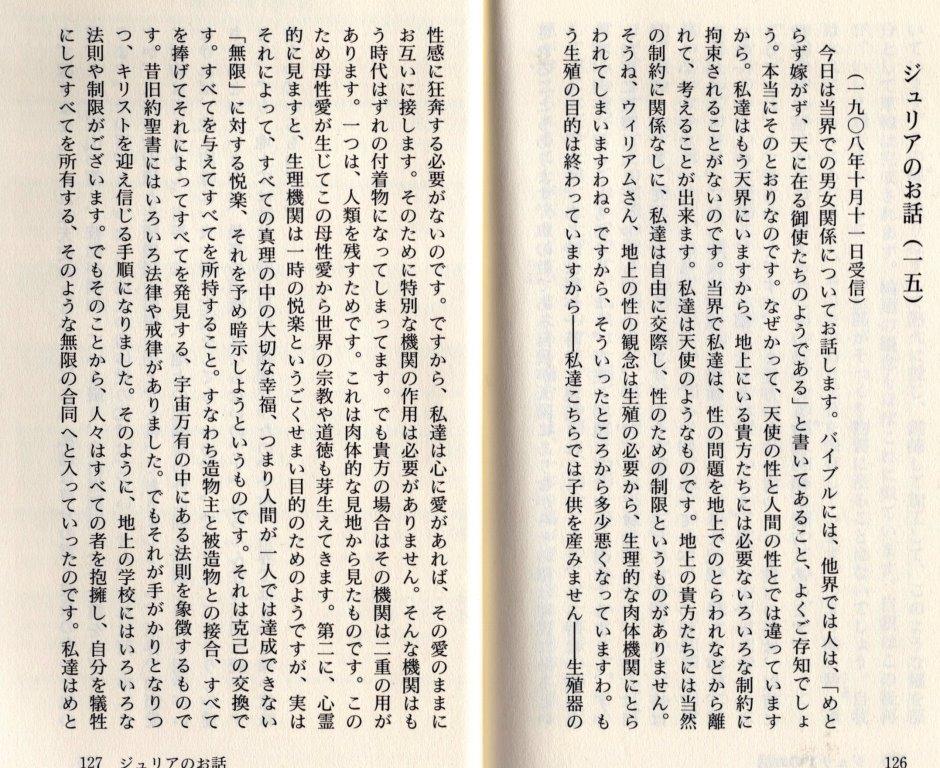 ジュリアのお話(一五)
(一九〇八年十月十一日受信)
今日は当界での男女関係についてお話します。バイブルには、他界では人は、「めと
らず嫁がず、天に在る御使たちのようである」と書いてあること、よくご存知でしょ
う。本当にそのとおりなのです。なぜかって、天使の性と人間の性とでは違っています
から。私達はもう天界にいますから、地上にいる貴方たちには必要ないろいろな制約に
拘束されることがないのです。当界で私達は、性の問題を地上でのとらわれなどから離
れて、考えることが出来ます。私達は天使のようなものです。地上の貴方たちには当然
の制約に関係なしに、私達は自由に交際し、性のための制限というものがありません。
そうね、ウィリアムさん、地上の性の観念は生殖の必要から、生理的な肉体機関にとら
われてしまいますわね。ですから、そういったところから多少悪くなっていますわ。も
う生殖の目的は終わっていますから――私達こちらでは子供を産みません――生殖器の
126
性感に狂奔する必要がないのです。ですから、私達は心に愛があれば、その愛のままに
お互いに接します。そのために特別な機関の作用は必要がありません。そんな機関はも
う時代はずれの付着物になってしまってます。でも貴方の場合はその機関は二重の用が
あります。一つは、人類を残すためです。これは肉体的な見地から見たものです。この
ため母性愛が生じてこの母性愛から世界の宗教や道徳も芽生えてきます。第二に、心霊
的に見ますと、生理機関は一時の悦楽というごくせまい目的のためのようですが、実は
それによって、すべての真理の中の大切な幸福、つまり人間が一人では達成できない
「無限」に対する悦楽、それを予め暗示しようというものです。それは克己の交換で
す。すべてを与えてすべてを所持すること。すなわち造物主と被造物との接合、すべて
を捧げてそれによってすべてを発見する、宇宙万有の中にある法則を象徴するもので
す。昔旧約聖書にはいろいろ法律や戒律がありました。でもそれが手がかりとなりつ
つ、キリストを迎え信じる手順になりました。そのように、地上の学校にはいろいろな
法則や制限がございます。でもそのことから、人々はすべての者を抱擁し、自分を犠牲
にしてすべてを所有する、そのような無限の合同へと入っていったのです。私達はめと
127 ジュリアのお話